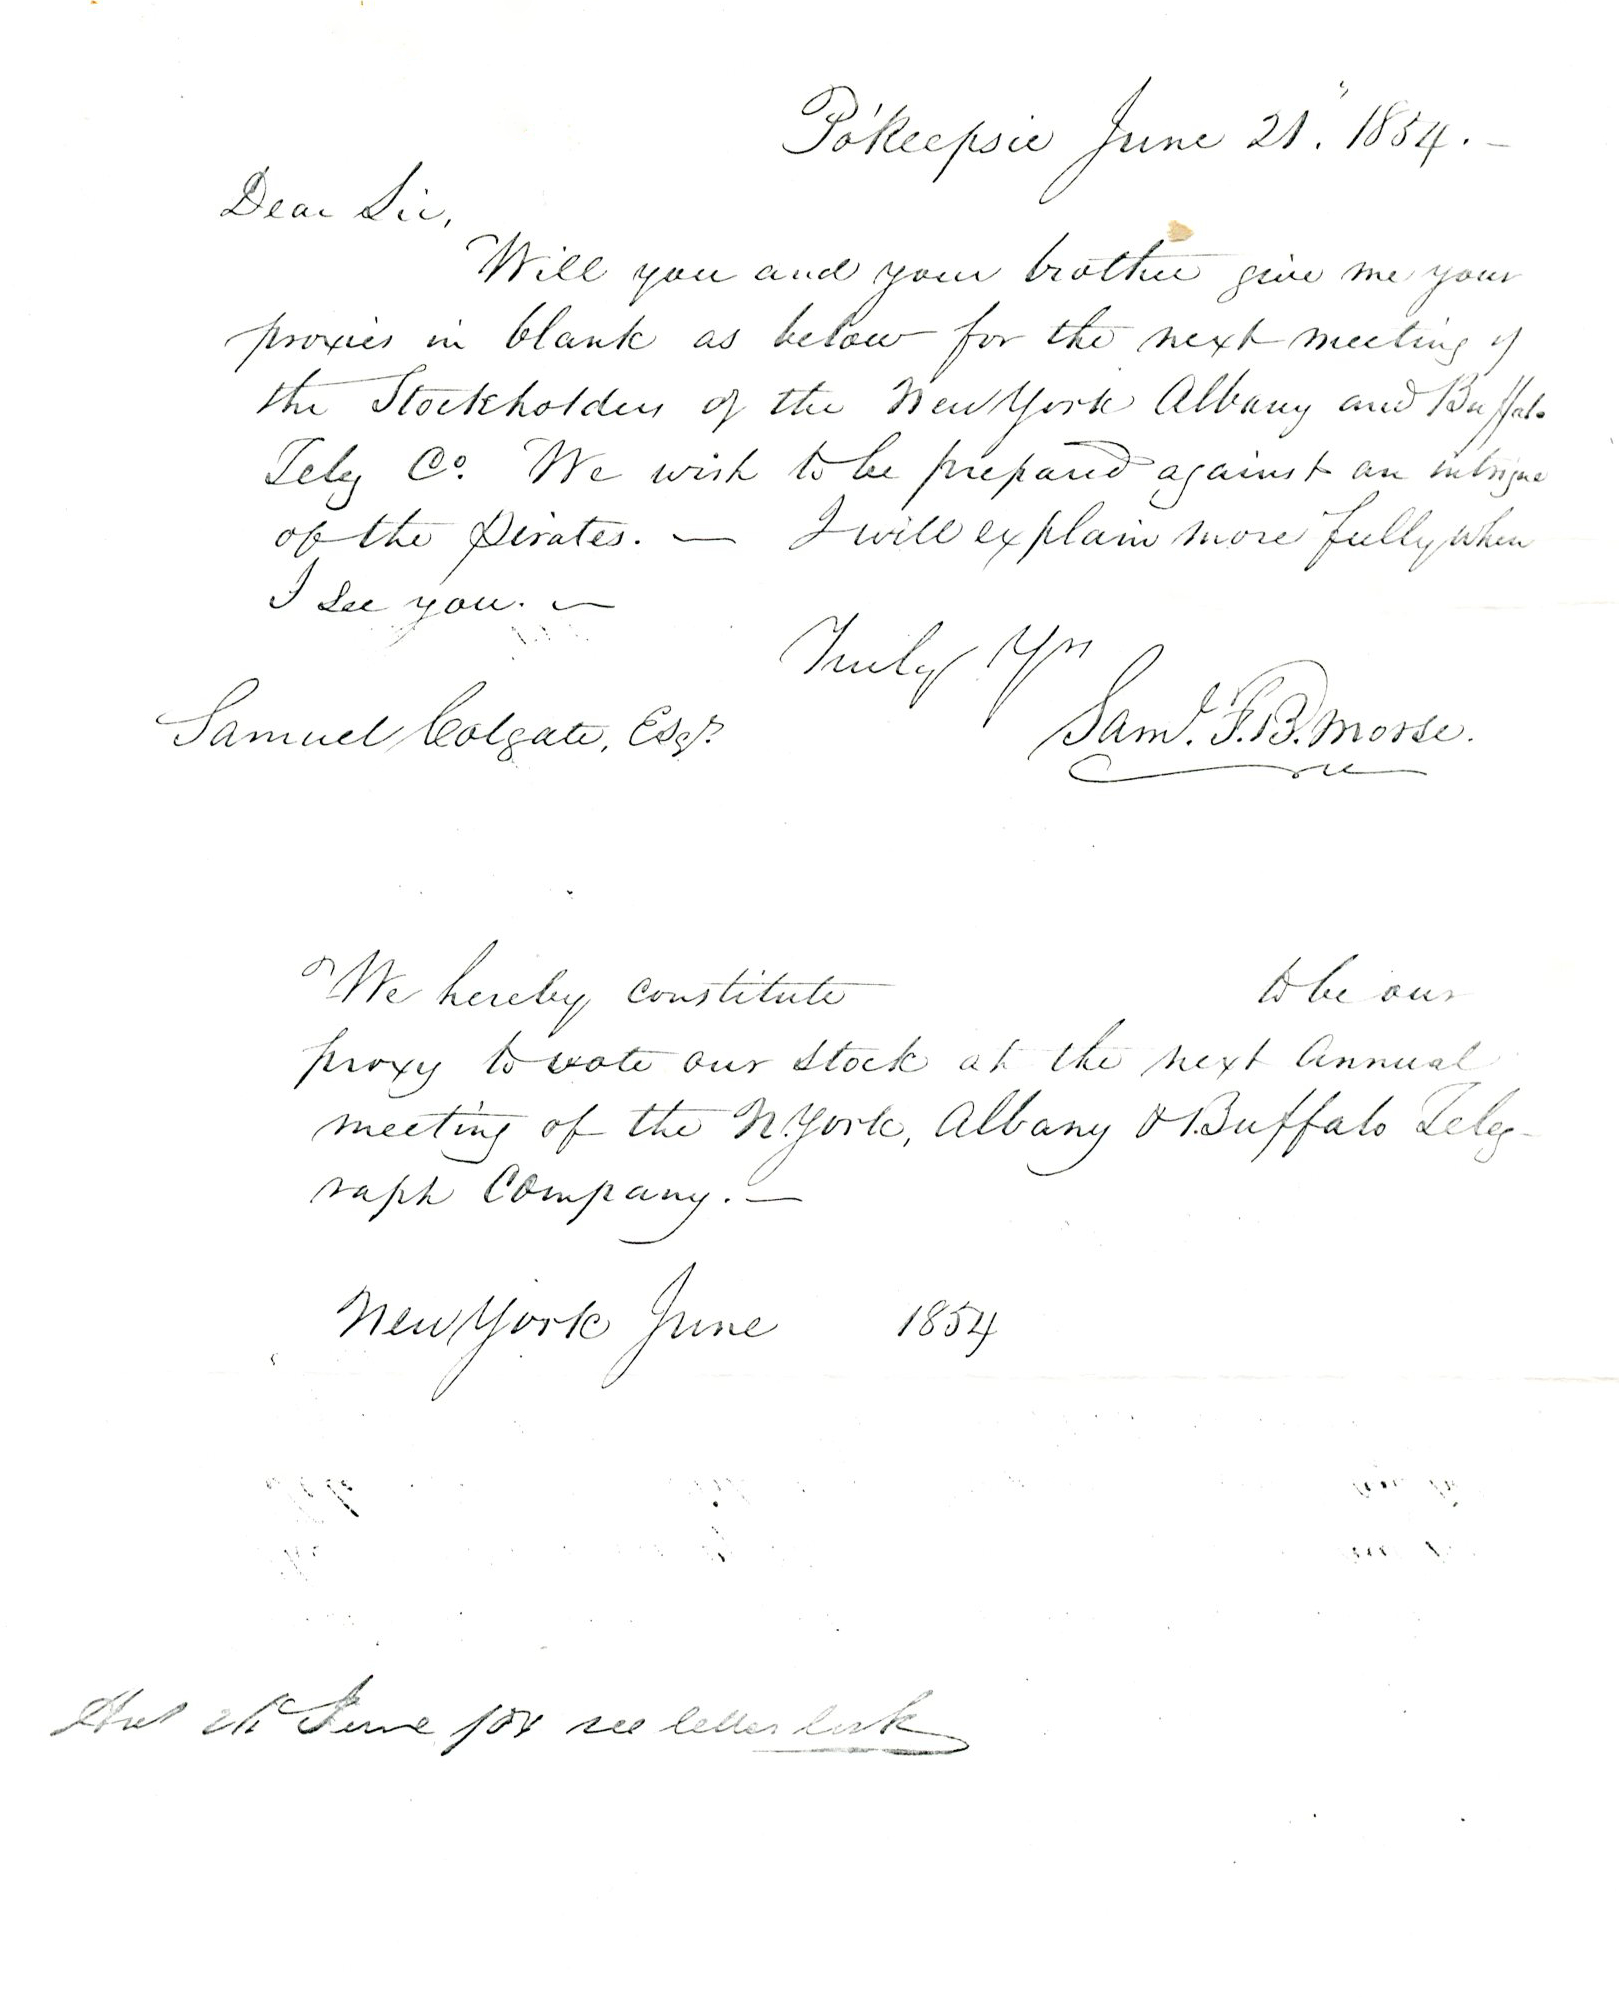 Po'keepsie June 21. 1854. —
Dear Sir,
Will you and your brother give me your
proxies in blank as below for the next meeting of
the Stockholders of the New York Albany and Buffalo
Teleg Co. We wish to be prepared against an intrigue
of the Pirates. — I will explain more fully when
I see you. —
Truly Yrs
Samuel Colgate, Esqr.
Saml. F. B. Morse.
"We hereby constitute to be our
proxy to vote our stock at the next Annual
meeting of the N. York, Albany & Buffalo Teleg-
raph Company. —
New York June 1854
June see letter